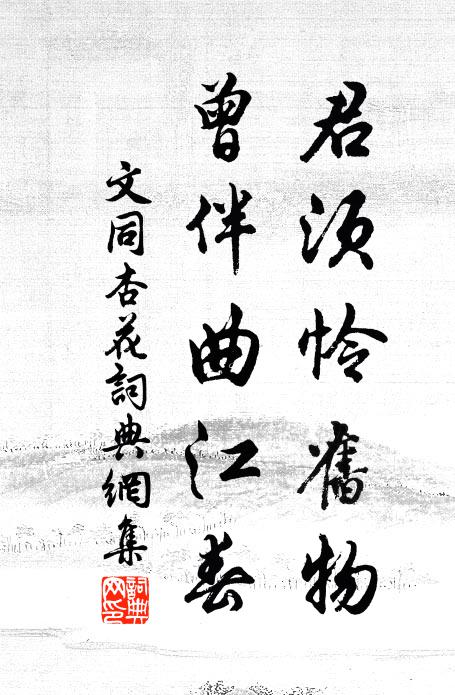 君須怜舊物
曾伴曲江春
文同杏花詞典網集
詞典網印